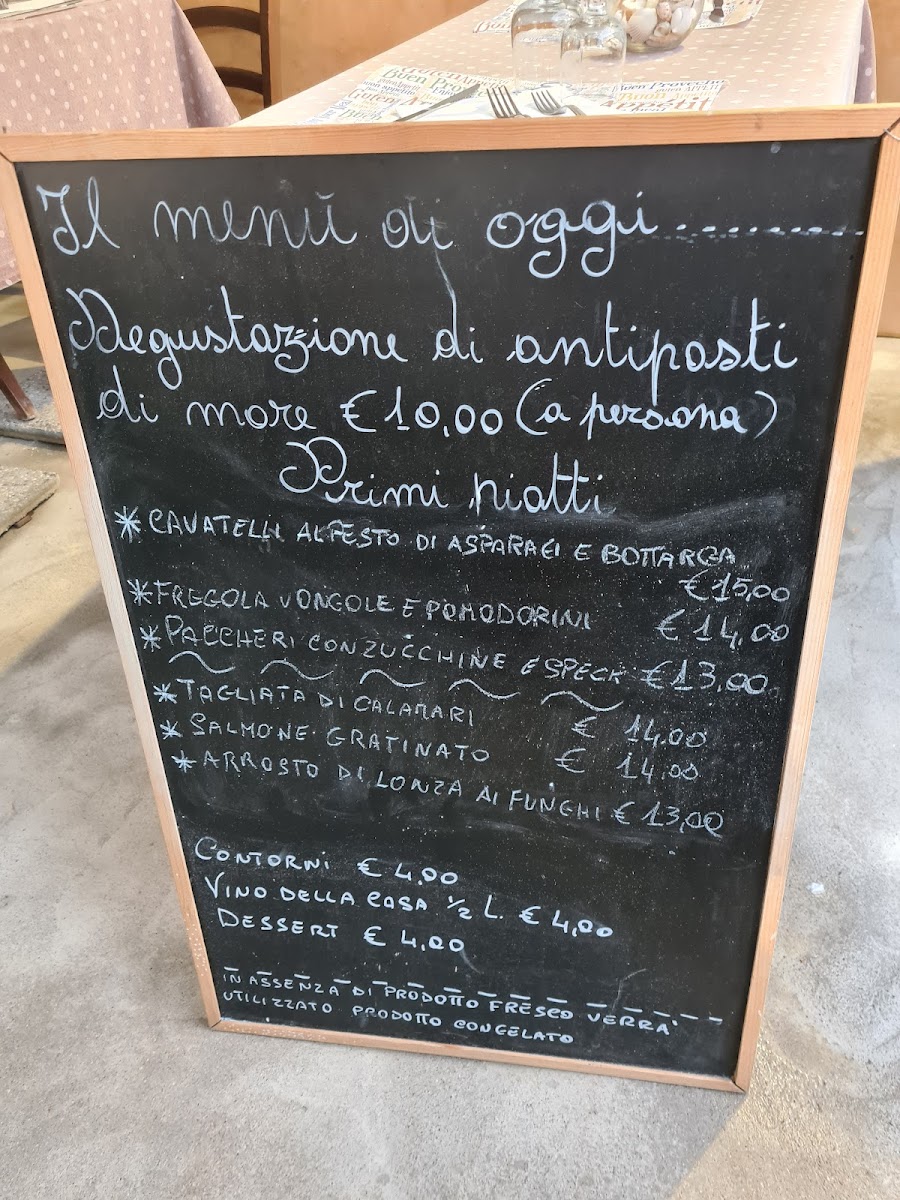 Guten Appetit
Buen Provecho
Guten
Appétit
Il menù di oggi..............
Degustazione di antipasti
di mare €10,00 (a persona)
Primi piatti
* CAVATELLI AL PESTO DI ASPARAGI E BOTTARGA
€15,00
* FREGOLA VONGOLE E POMODORINI € 14,00
* PACCHERI CON ZUCCHINE E SPECK €13,00
* TAGLIATA DI CALAMARI € 14,00
* SALMONE GRATINATO € 14,00
* ARROSTO DI LONZA AI FUNGHI € 13,00
CONTORNI € 4,00
VINO DELLA CASA ½ L. € 4,00
DESSERT € 4,00
IN ASSENZA DI PRODOTTO FRESCO VERRA'
UTILIZZATO PRODOTTO CONGELATO